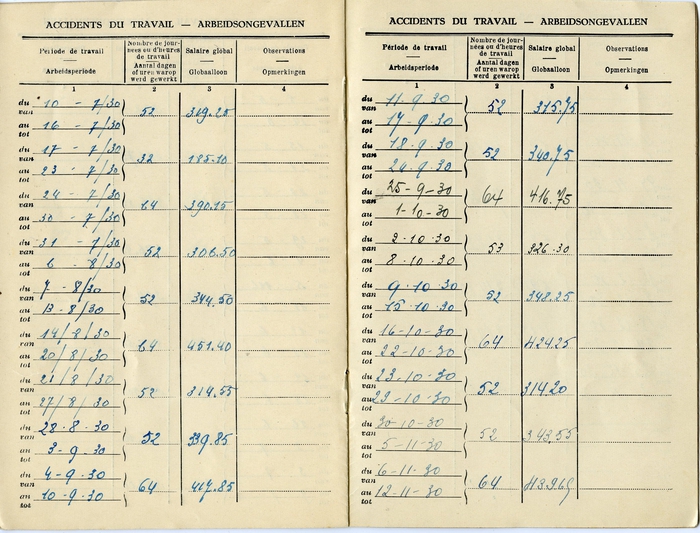 ACCIDENTS DU TRAVAIL — ARBEIDSONGEVALLEN
Période de travail
Arbeidsperiode
Nombre de jour-
nées ou d'heures
de travail
Aantal dagen
of uren waarop
werd gewerkt
Salaire global
Globaalloon
Observations
Opmerkingen
1 2 3 4
du van 10 - 7/30
au tot 16 - 7/30 52 319.25
du van 17 - 7/30
au tot 23 - 7/30 32 185.10
du van 24 - 7/30
au tot 30 - 7/30 64 390.15
du van 31 - 7/30
au tot 6 - 8/30 52 306.50
du van 7 - 8/30
au tot 13 - 8/30 52 344.50
du van 14/8/30
au tot 20/8/30 64 451.40
du van 21/8/30
au tot 27/8/30 52 314.55
du van 28.8.30
au tot 3-9.30 52 339.85
du van 4-9.30
au tot 10-9.30 64 417.85
ACCIDENTS DU TRAVAIL — ARBEIDSONGEVALLEN
Période de travail
Arbeidsperiode
Nombre de jour-
nées ou d'heures
de travail
Aantal dagen
of uren waarop
werd gewerkt
Salaire global
Globaalloon
Observations
Opmerkingen
1 2 3 4
du van 11.9.30
au tot 17.9.30 52 315.75
du van 18.9.30
au tot 24.9.30 52 340.75
du van 25-9-30
au tot 1-10-30 64 416.75
du van 2.10.30
au tot 8.10.30 53 326.30
du van 9.10.30
au tot 15.10.30 52 348.25
du van 16-10-30
au tot 22-10-30 64 424.25
du van 23-10-30
au tot 29-10-30 52 314.20
du van 30-10-30
au tot 5-11-30 52 343.55
du van 6-11-30
au tot 12-11-30 64 413.95